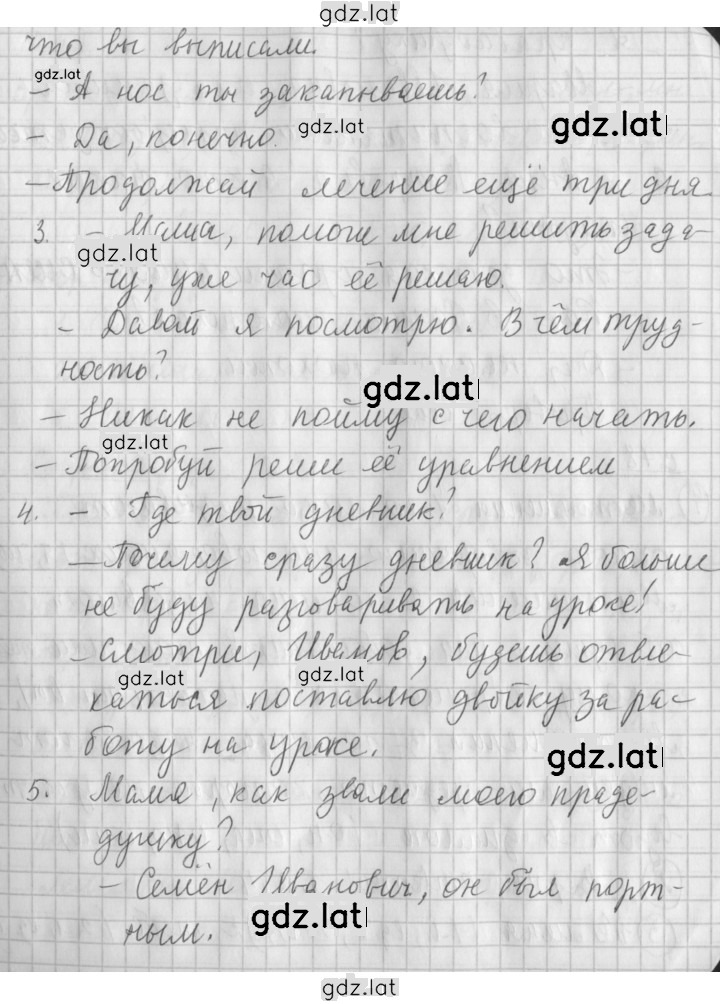 gdz.lat
что вы выписали.
gdz.lat
- А нос ты закапываешь?
gdz.lat
gdz.lat
- Да, конечно.
- Продолжай лечение ещё три дня.
3. - Мама, помоги мне решить зада-
gdz.lat
чу, уже час её решаю.
- Давай я посмотрю. В чём труд-
ность?
gdz.lat
- Никак не пойму с чего начать.
gdz.lat
- Попробуй реши её уравнением
4. - Где твой дневник?
- Почему сразу дневник? Я больше
не буду разговаривать на уроке!
- Смотри, Иванов, будешь отвле-
gdz.lat
gdz.lat
каться поставлю двойку за ра-
боту на уроке.
gdz.lat
5. Мама, как звали моего праде-
душку?
- Семён Иванович, он был порт-
gdz.lat
ным.
gdz.lat